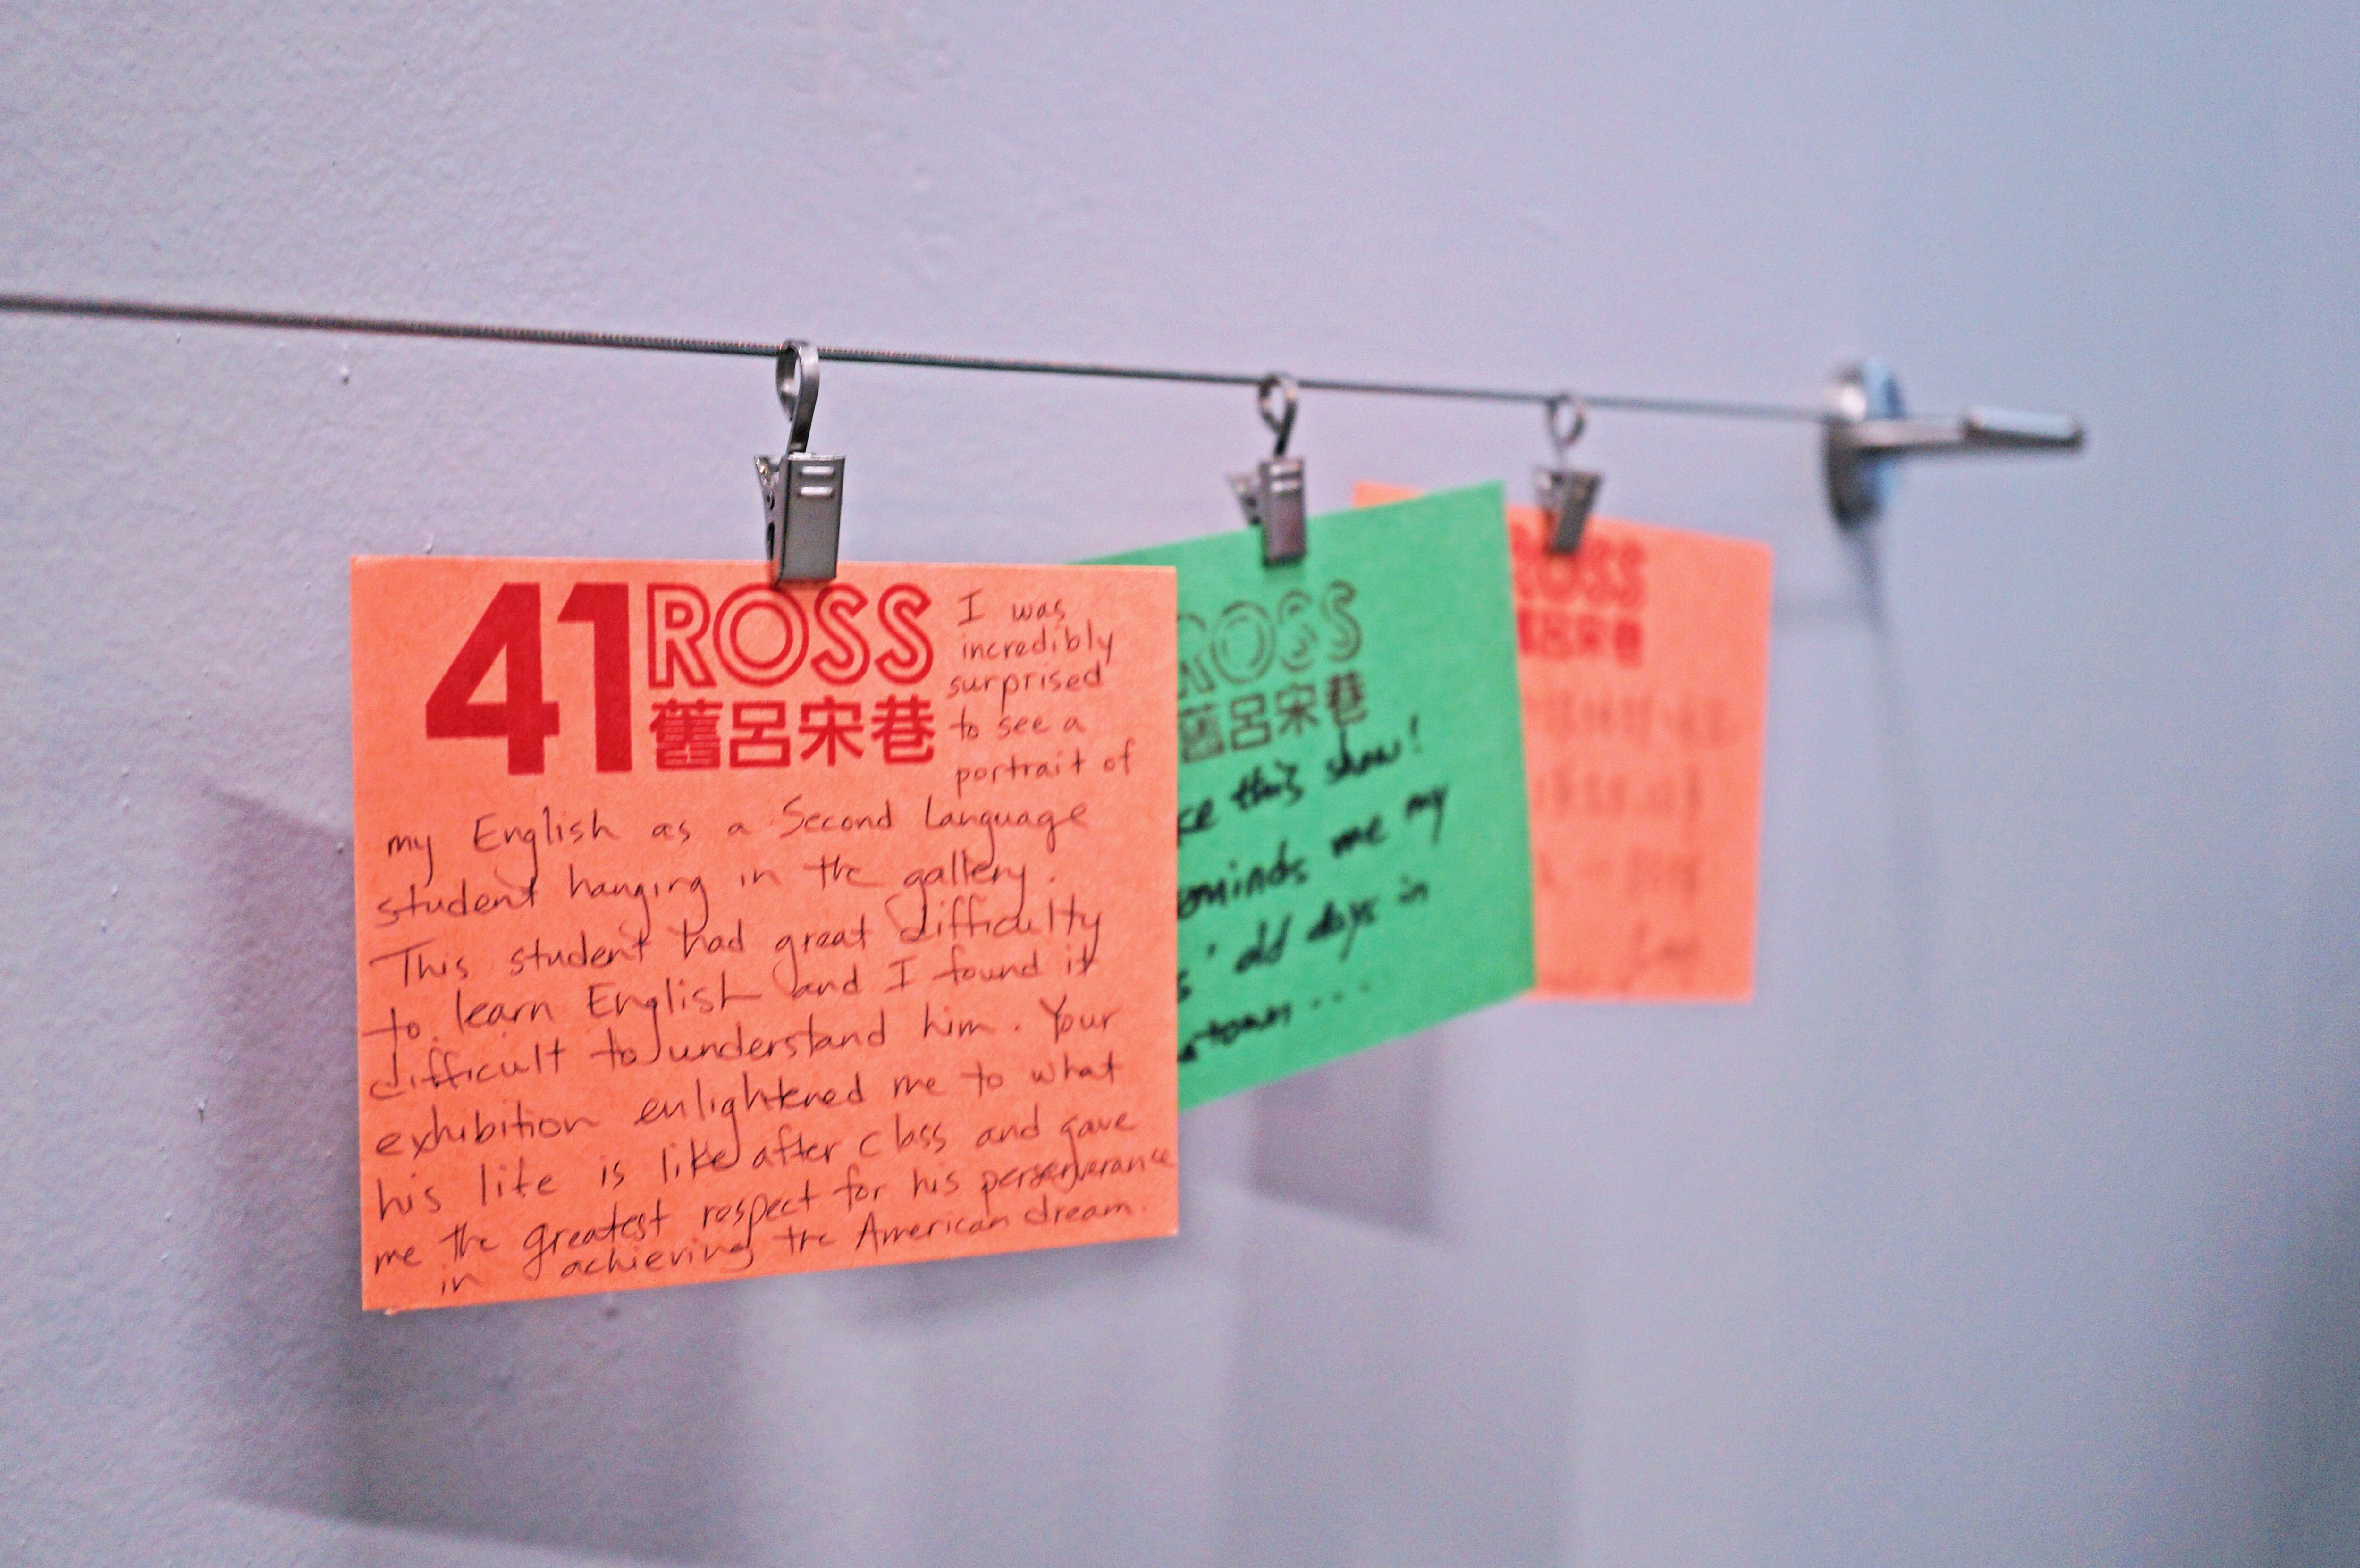 41 ROSS
舊呂宋巷
I was
incredibly
surprised
to see a
portrait of
my English as a Second Language
student hanging in the gallery.
This student had great difficulty
to learn English and I found it
difficult to understand him. Your
exhibition enlightened me to what
his life is like after class and gave
me the greatest respect for his perserverance
in achieving the American dream.
ROSS
舊呂宋巷
this show!
me my
old days in
ROSS
呂宋巷